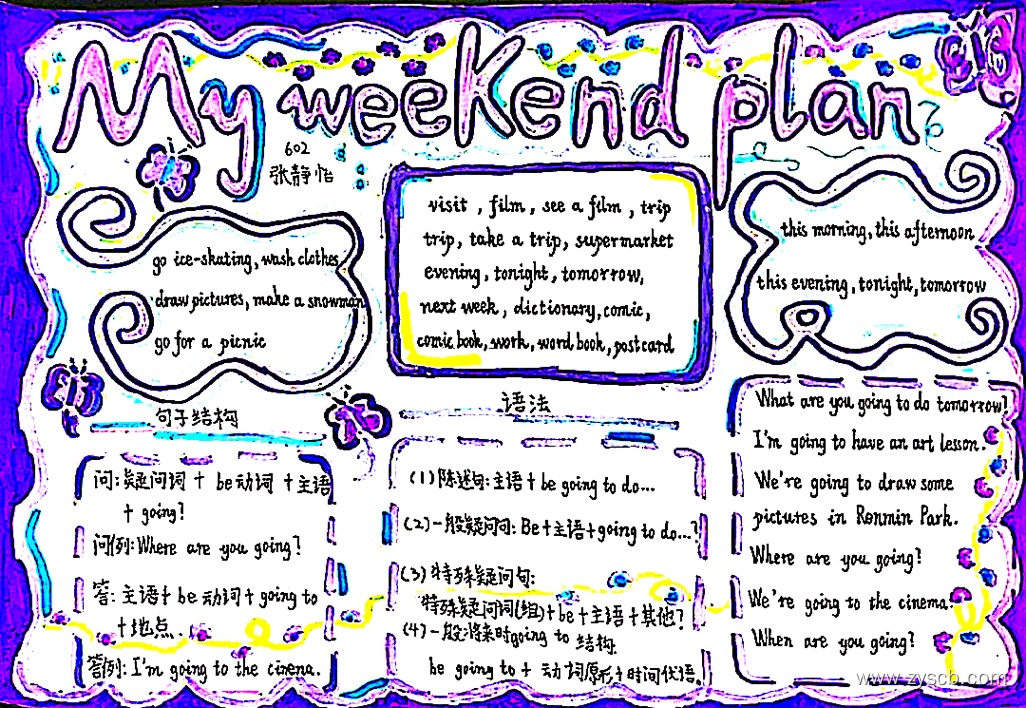 My weekend plan
602
张静怡
go ice-skating, wash clothes,
draw pictures, make a snowman
go for a picnic
visit, film, see a film, trip
trip, take a trip, supermarket
evening, tonight, tomorrow,
next week, dictionary, comic,
comic book, work, word book, postcard
this morning, this afternoon
this evening, tonight, tomorrow
句子结构
问: 疑问词 + be动词 + 主语
+ going?
问例: Where are you going?
答: 主语 + be 动词 + going to
+ 地点.
答例: I'm going to the cinema.
语法
(1) 陈述句: 主语 + be going to do...
(2) 一般疑问句: Be + 主语 + going to do...?
(3) 特殊疑问句:
特殊疑问词(组) + be + 主语 + 其他?
(4) 一般将来时going to 结构
be going to + 动词原形 + 时间状语.
What are you going to do tomorrow?
I'm going to have an art lesson.
We're going to draw some
pictures in Renmin Park.
Where are you going?
We're going to the cinema.
When are you going?
www.zyscb.com